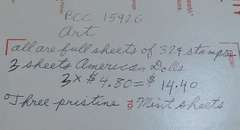 PCC 15926
Art
all are full sheets of 32¢ stamps
3 sheets American Dolls
3 x $4.80 = $14.40
Three pristine Mint sheets